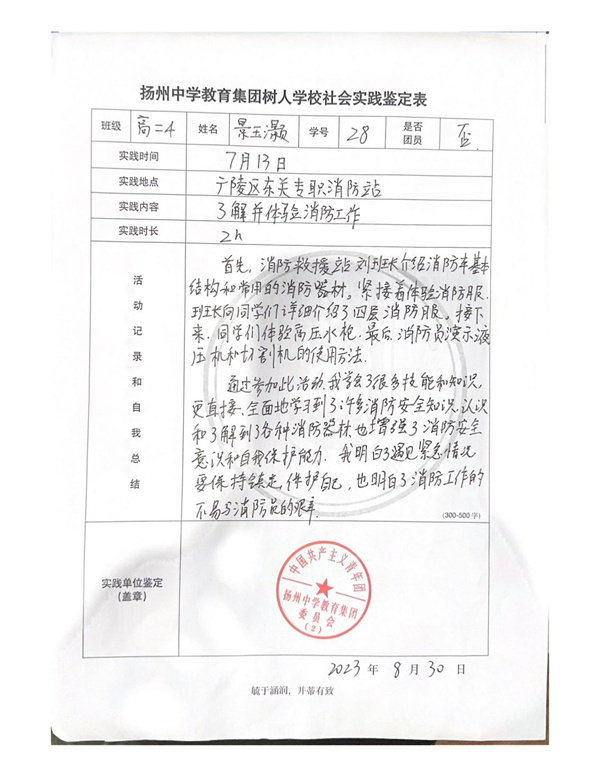 扬州中学教育集团树人学校社会实践鉴定表
班级 高二4 姓名 景玉灏 学号 28 是否团员 否
实践时间 7月13日
实践地点 广陵区东关专职消防站
实践内容 了解并体验消防工作
实践时长 2h
活动记录和自我总结
首先，消防救援站刘班长介绍消防车基本
结构和常用的消防器材。紧接着体验消防服，
班长向同学们详细介绍了四层消防服。接下
来，同学们体验高压水枪，最后，消防员演示液
压机和切割机的使用方法。
通过参加此活动，我学会了很多技能和知识，
更直接、全面地学习到了许多消防安全知识，认识
和了解到了各种消防器材，也增强了消防安全
意识和自我保护能力。我明白了遇见紧急情况
要保持镇定，保护自己，也明白了消防工作的
不易与消防员的艰辛。
(300-500 字)
实践单位鉴定
(盖章)
中国共产主义青年团
扬州中学教育集团
委员会
(2)
2023 年 8 月 30 日
毓于涵润，并蒂有致